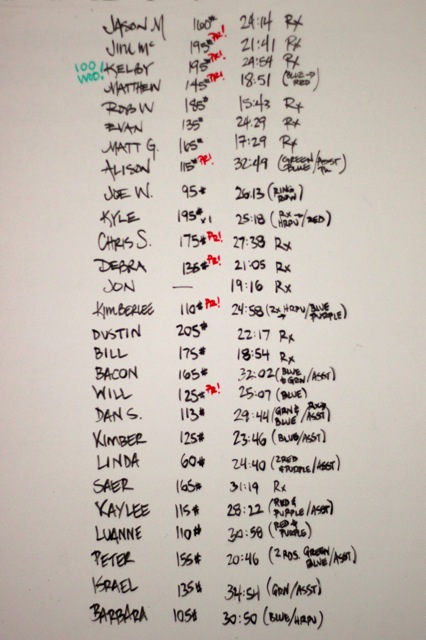 JASON M 160# 24:14 Rx
JIM Mc 195# PR! 21:41 Rx
100! WOD! KELBY 195# PR! 24:54 Rx
MATTHEW 145# PR! 18:51 (BLUE→ RED)
ROB W 185# 15:43 Rx
EVAN 135# 24:29 Rx
MATT G. 165# 17:29 Rx
ALISON 115# PR! 32:49 (GREEN/ASST BLUE
JOE W. 95# 26:13 (RING ROW)
KYLE 195# x1 25:18 (Rx→ HRPU/RED)
CHRIS S. 175# PR! 27:38 Rx
DEBRA 135# PR! 21:05 Rx
JON — 19:16 Rx
KIMBERLEE 110# PR! 24:58 (Rx→HRPU/BLUE PURPLE)
DUSTIN 205# 22:17 Rx
BILL 175# 18:54 Rx
BACON 165# 32:02 (BLUE & GRN/ASST)
WILL 125# PR! 25:07 (BLUE)
DAN S. 113# 29:44 (GRN & BLUE /ASST)
KIMBER 125# 23:46 (BLUE/ASST)
LINDA 60# 24:40 (2RED & PURPLE/ASST)
SAER 165# 31:19 Rx
KAYLEE 115# 28:22 (RED & PURPLE/ASST)
LUANNE 110# 30:58 (RED & PURPLE)
PETER 155# 20:46 (2 RDS. GREEN BLUE/ASST)
ISRAEL 135# 34:54 (GRN/ASST)
BARBARA 105# 30:50 (BLUE/HRPU)